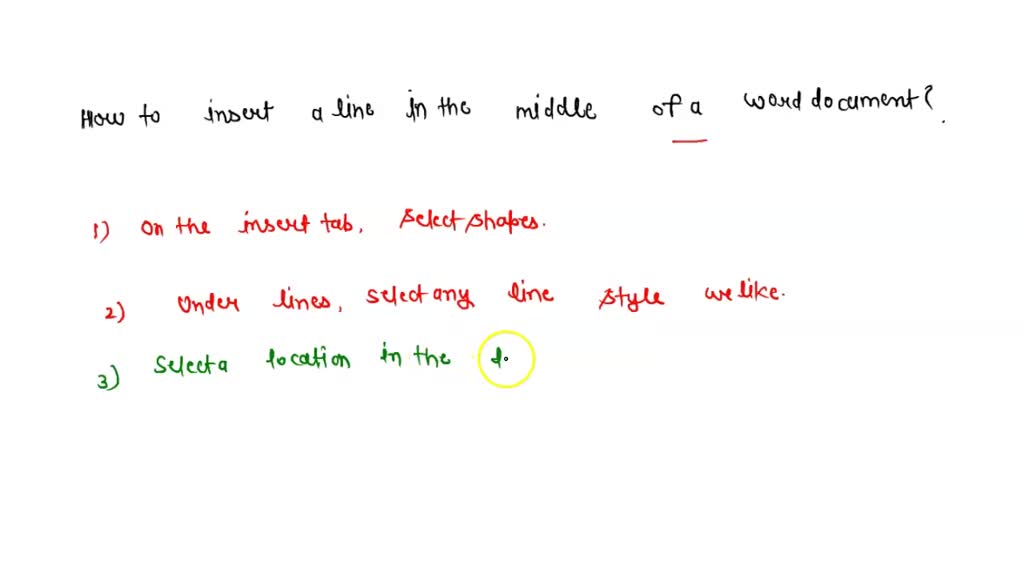 How to insert a line in the middle of a word document?
1) On the insert tab, select shapes.
2) Under lines, select any line style we like.
3) Select a location in the